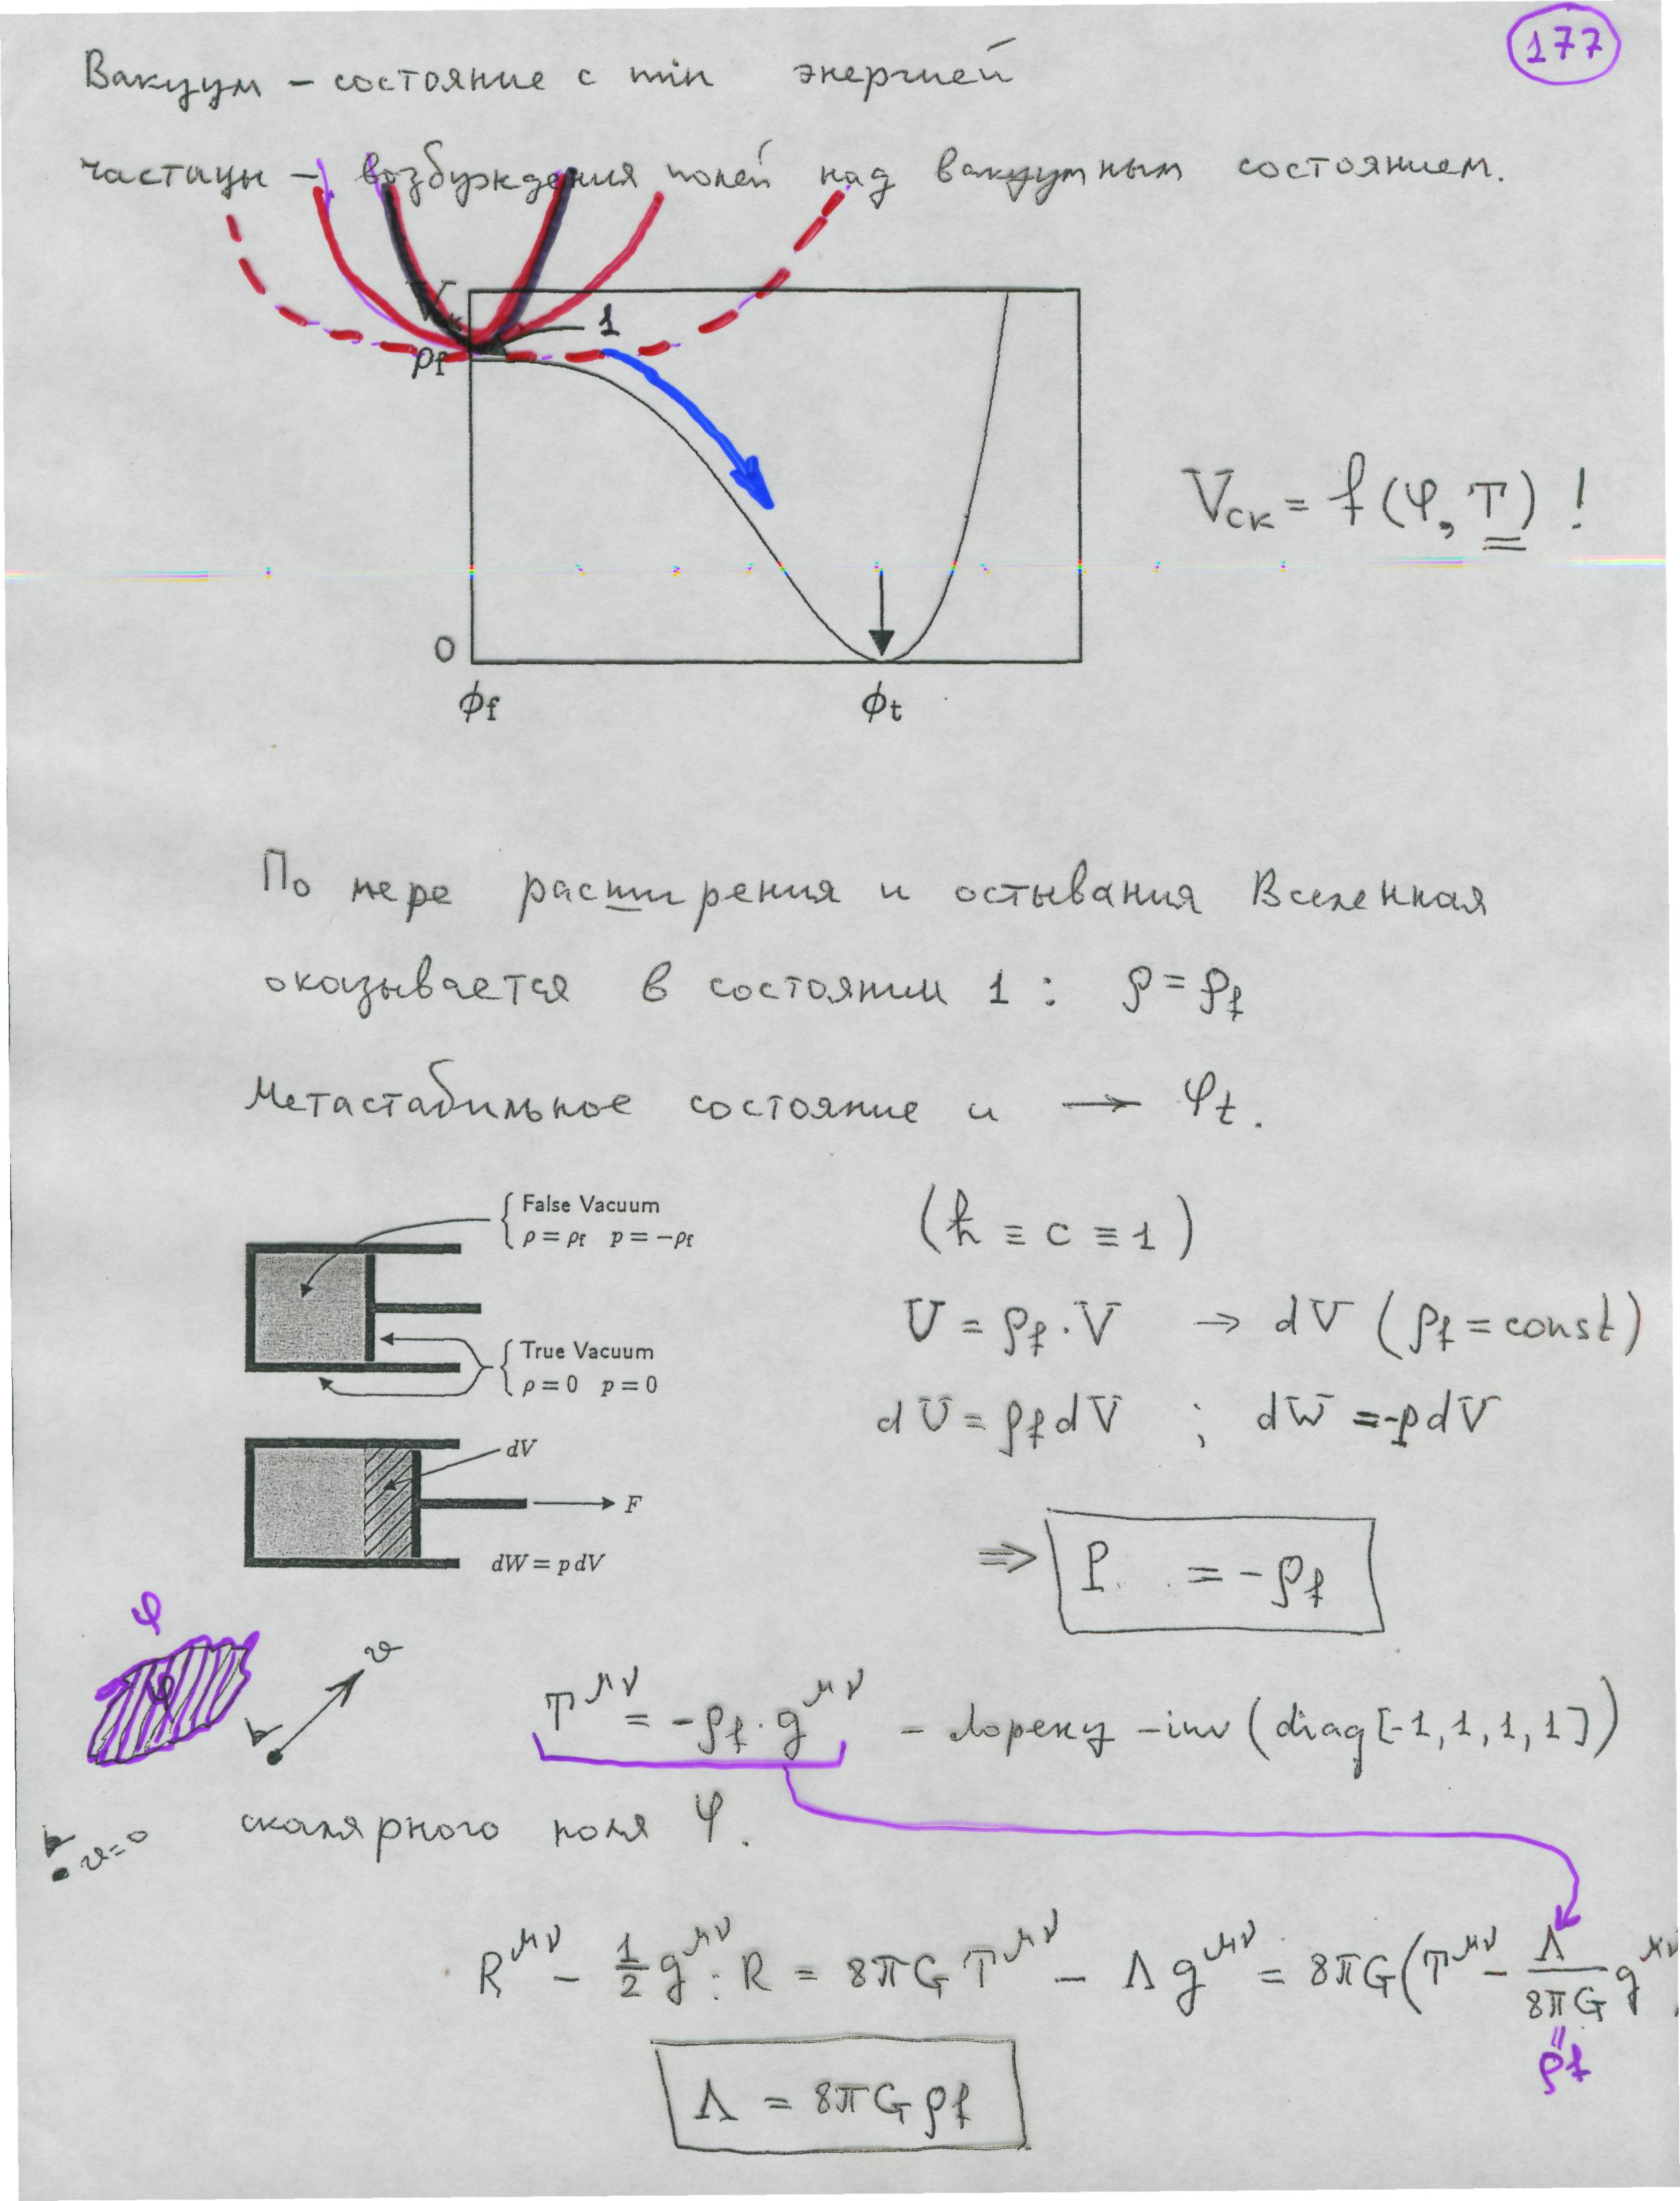 177
Вакуум – состояние с min энергией
частицы – возбуждения полей над вакуумным состоянием.
1
ρf
V_ск = f(φ, T) !
0
ϕf ϕt
По мере расширения и остывания Вселенная
оказывается в состоянии 1 : ρ = ρ_f
Метастабильное состояние и → φ_t.
False Vacuum
ρ = ρf p = −ρf
True Vacuum
ρ = 0 p = 0
(ħ ≡ c ≡ 1)
U = ρ_f · V → dV (ρ_f = const)
dU = ρ_f dV ; dW = -pdV
dV
F
dW = p dV
⇒ P = - ρ_f
φ
v
T^μν = -ρ_f · g^μν – Лоренц -inv (diag [-1, 1, 1, 1])
скалярного поля φ.
v=0
R^μν - 1/2 g^μν · R = 8πG T^μν - Λ g^μν = 8πG(T^μν - Λ/8πG g^μν
ρf
Λ = 8πGρf